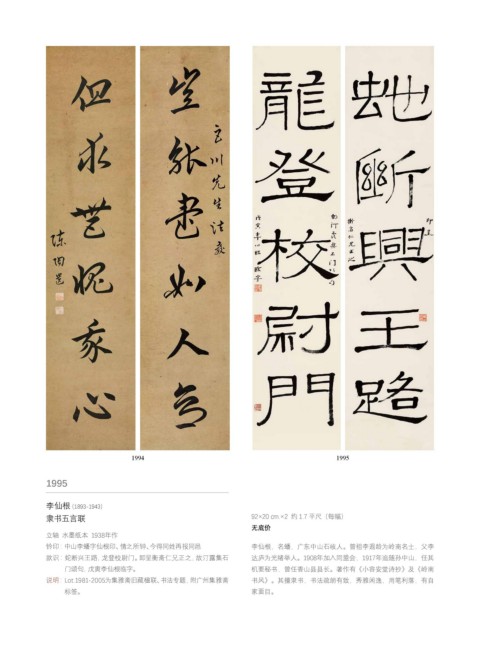 豈能盡如人意
先生法教
但求無愧我心
陳陶遺
虵斷興王路
龍登校尉門
1994
1995
1995
李仙根 (1893-1943)
隶书五言联
立轴 水墨纸本 1938年作
钤印: 中山李蟠字仙根印、情之所钟、
款识: 蛇断兴王路，龙登校尉门。即呈衡斋仁兄正之，集石
门颂句，戊寅李仙根
说明: Lot 1981-2005为集雅斋旧藏楹联、书法专题，附广州集雅斋
标签。
92×20 cm.×2 约 1.7 平尺（每幅）
无底价
李仙根，名蟠，广东中山石岐人。曾祖李遐龄为岭南名士，父李
达庐为光绪举人。1908年加入同盟会，1917年追随孙中山，任其
机要秘书，曾任香山县县长。著作有《小容安堂诗钞》及《岭南
书风》。其擅隶书，书法疏朗有致，秀雅闲逸，用笔利落，有自
家面目。